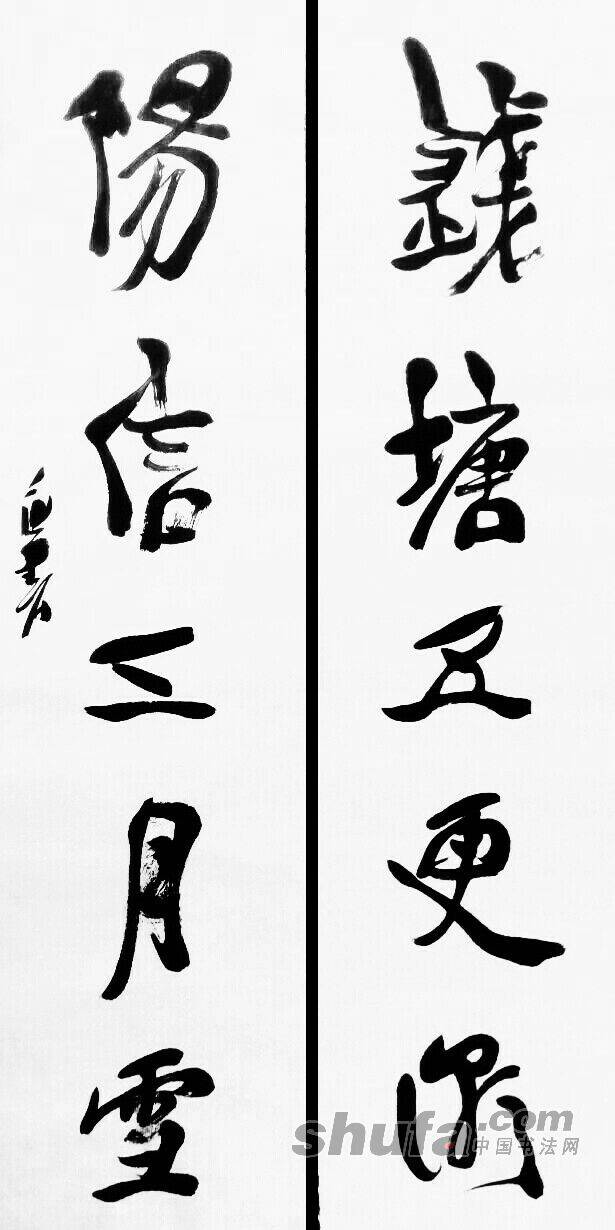 錢塘五更潮
陽信三月雪
shufa.com
中国书法网